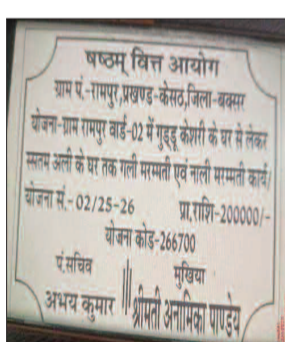 षष्ठम् वित्त आयोग
ग्राम पं.-रामपुर,प्रखण्ड-केसठ,जिला-बक्सर
योजना-ग्राम रामपुर वार्ड-02 में गुड्डू केशरी के घर से लेकर
रुस्तम अली के घर तक गली मरम्मती एवं नाली मरम्मती कार्य/
योजना सं.-02/25-26 प्रा.राशि-200000/-
योजना कोड-266700
पं.सचिव मुखिया
अभय कुमार श्रीमती अनामिका पाण्डेय